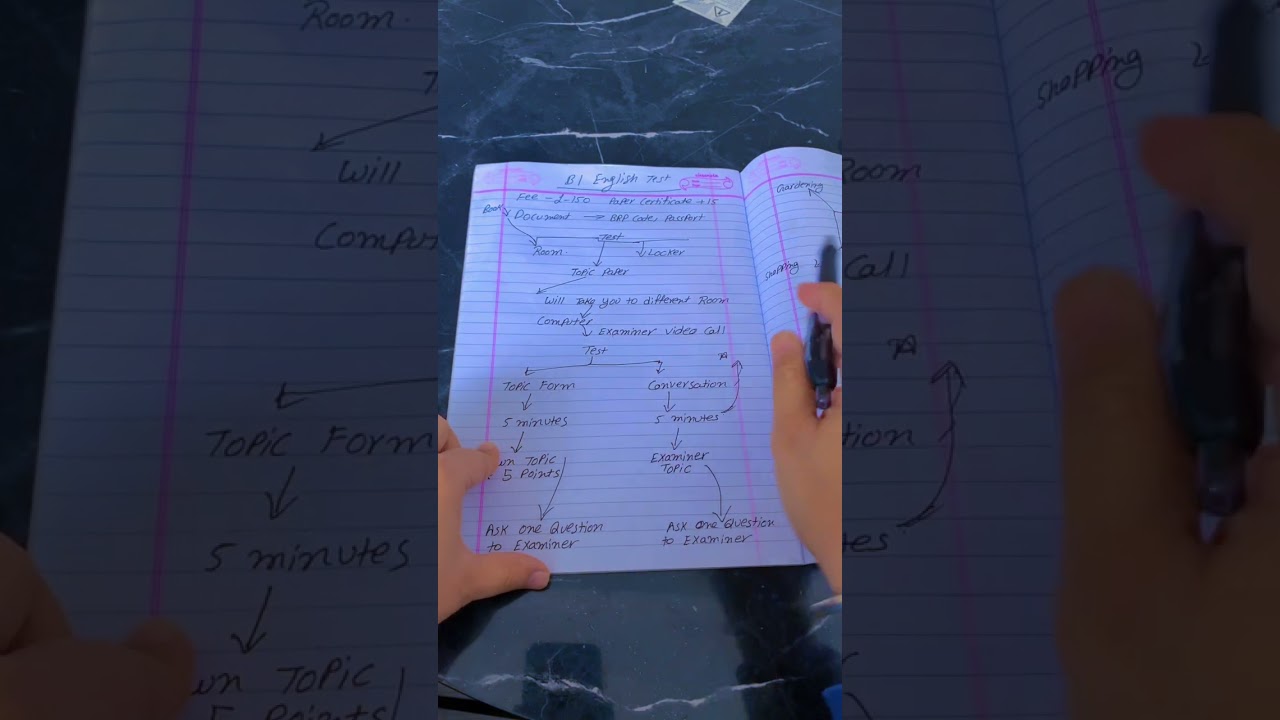 B1 English Test
Fee - £150 Paper Certificate + 15
Book Document → BRP Code, Passport
Test
Room Locker
Topic Paper
Will Take you to different Room
Computer
Examiner video call
Test
Topic Form Conversation
5 minutes 5 minutes
Topic Examiner
5 Points Topic
Ask one Question Ask one Question
to Examiner to Examiner
Gardening
Shopping
Room.
Will
Computer
Topic Form
5 minutes
Topic
5 Points
Shopping
Room
Call